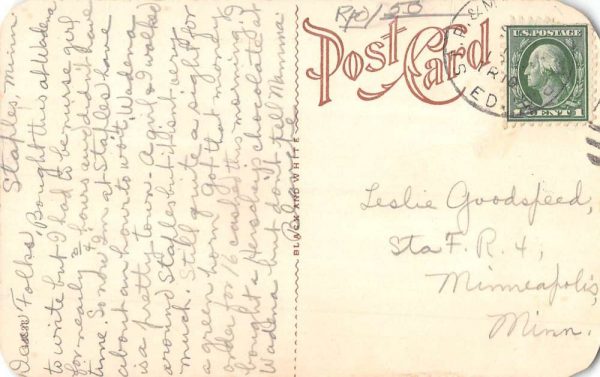 Staples, Minn
Dear Folks, Bought this at Wadena
to write but I had to be nurse girl
for nearly 2 hours and didn't have
time. So now I'm at Staples have
about an hour to wait. Wadena
is a pretty town - A girl & I walked
around Staples but it isn't very
much. Still quite a sight for
a green horn. Got that money
order for 16 cashed this morning
bought a Hershey's chocolate at
Wadena but don't tell Mamma
Blanche
BLACK AND WHITE
RPO/ 50
Post Card
ST. P. & M
TR 1
R.P.O.
U.S. POSTAGE
1 CENT 1
Leslie Goodspeed,
Sta F. R. 4,
Minneapolis,
Minn.